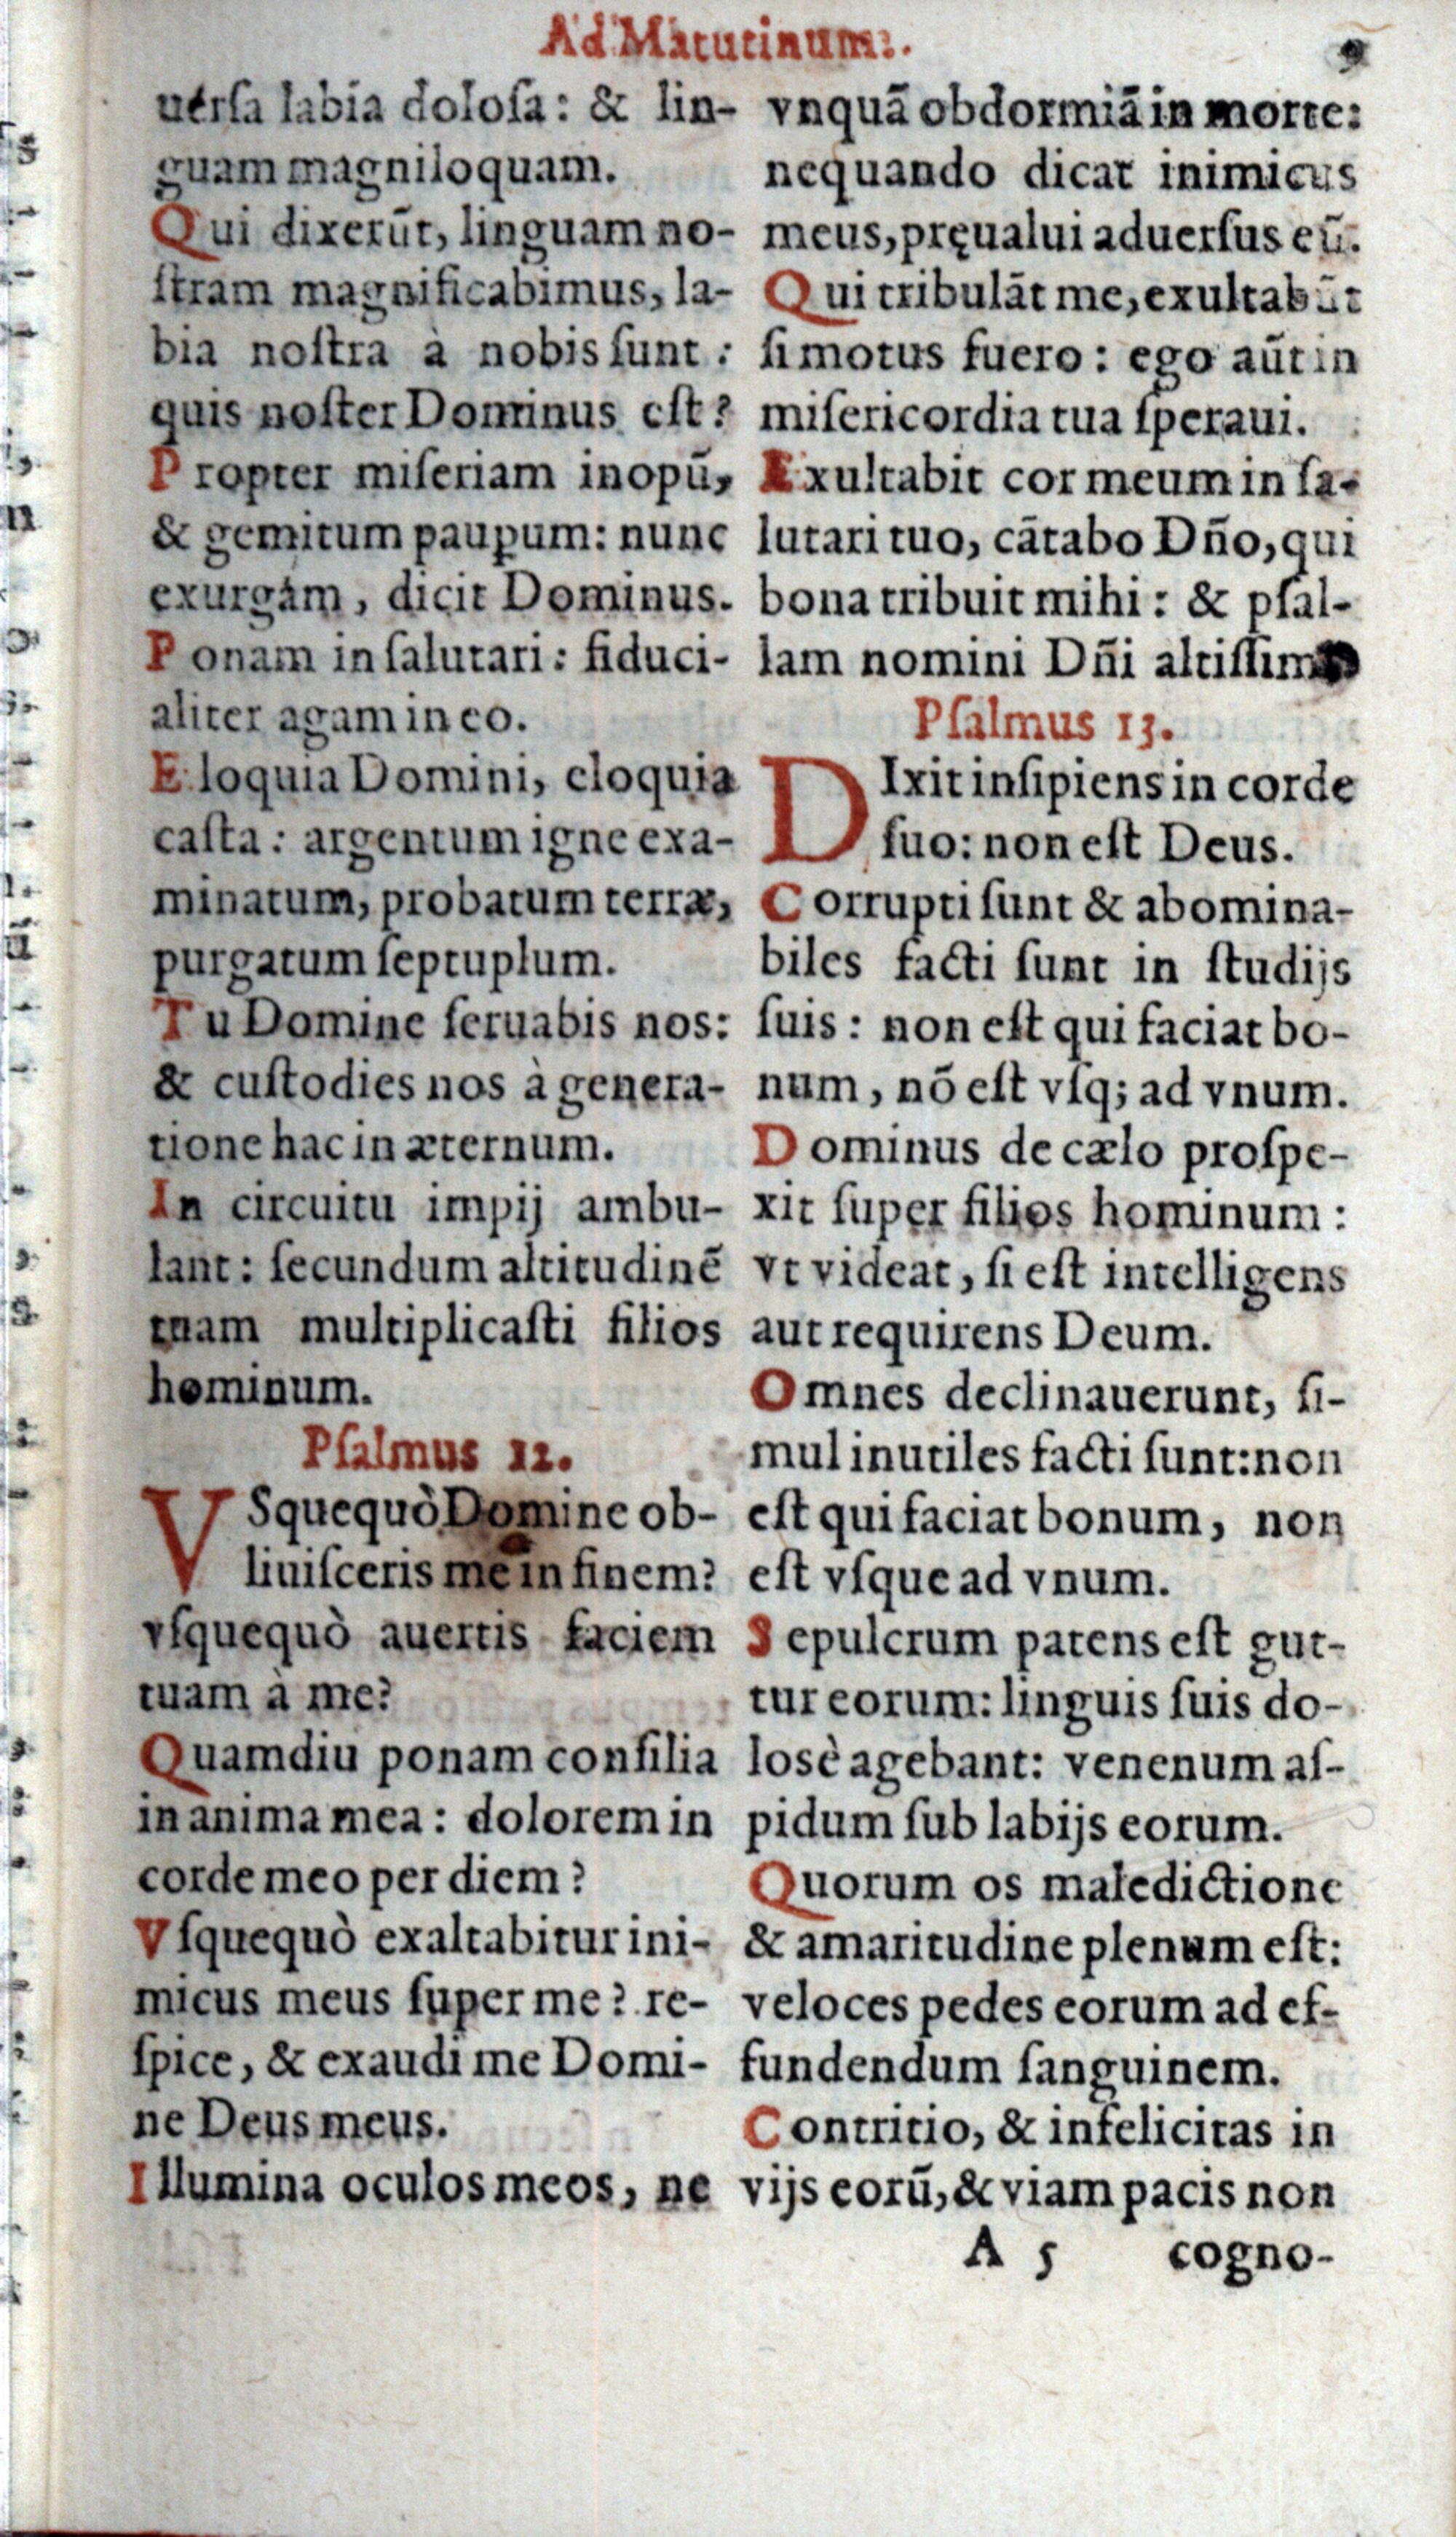 Ad Matutinum.
9
uersa labia dolosa: & lin-
guam magniloquam.
Qui dixerūt, linguam no-
ſtram magnificabimus, la-
bia noſtra à nobis ſunt:
quis noſter Dominus eſt?
Propter miſeriam inopū,
& gemitum paupum: nunc
exurgam, dicit Dominus.
Ponam in ſalutari: fiduci-
aliter agam in eo.
Eloquia Domini, eloquia
caſta: argentum igne exa-
minatum, probatum terræ,
purgatum ſeptuplum.
Tu Domine ſeruabis nos:
& cuſtodies nos à genera-
tione hac in æternum.
In circuitu impij ambu-
lant: ſecundum altitudinē
tuam multiplicaſti filios
hominum.
Pſalmus 12.
VSquequò Domine ob-
liuiſceris me in finem?
vſquequò auertis faciem
tuam à me?
Quamdiu ponam conſilia
in anima mea: dolorem in
corde meo per diem?
Vſquequò exaltabitur ini-
micus meus ſuper me? re-
ſpice, & exaudi me Domi-
ne Deus meus.
Illumina oculos meos, ne
vnquā obdormiā in morte:
nequando dicat inimicus
meus, pręualui aduerſus eū.
Qui tribulāt me, exultabūt
ſi motus fuero: ego aūt in
miſericordia tua ſperaui.
Exultabit cor meum in ſa-
lutari tuo, cātabo Dño, qui
bona tribuit mihi: & pſal-
lam nomini Dñi altiſſimi
Pſalmus 13.
DIxit inſipiens in corde
ſuo: non eſt Deus.
Corrupti ſunt & abomina-
biles facti ſunt in ſtudijs
ſuis: non eſt qui faciat bo-
num, nō eſt vſq; ad vnum.
Dominus de cælo proſpe-
xit ſuper filios hominum:
vt videat, ſi eſt intelligens
aut requirens Deum.
Omnes declinauerunt, ſi-
mul inutiles facti ſunt: non
eſt qui faciat bonum, non
eſt vſque ad vnum.
Sepulcrum patens eſt gut-
tur eorum: linguis ſuis do-
losè agebant: venenum aſ-
pidum ſub labijs eorum.
Quorum os maledictione
& amaritudine plenum eſt:
veloces pedes eorum ad ef-
fundendum ſanguinem.
Contritio, & infelicitas in
vijs eorū, & viam pacis non
A 5 cogno-